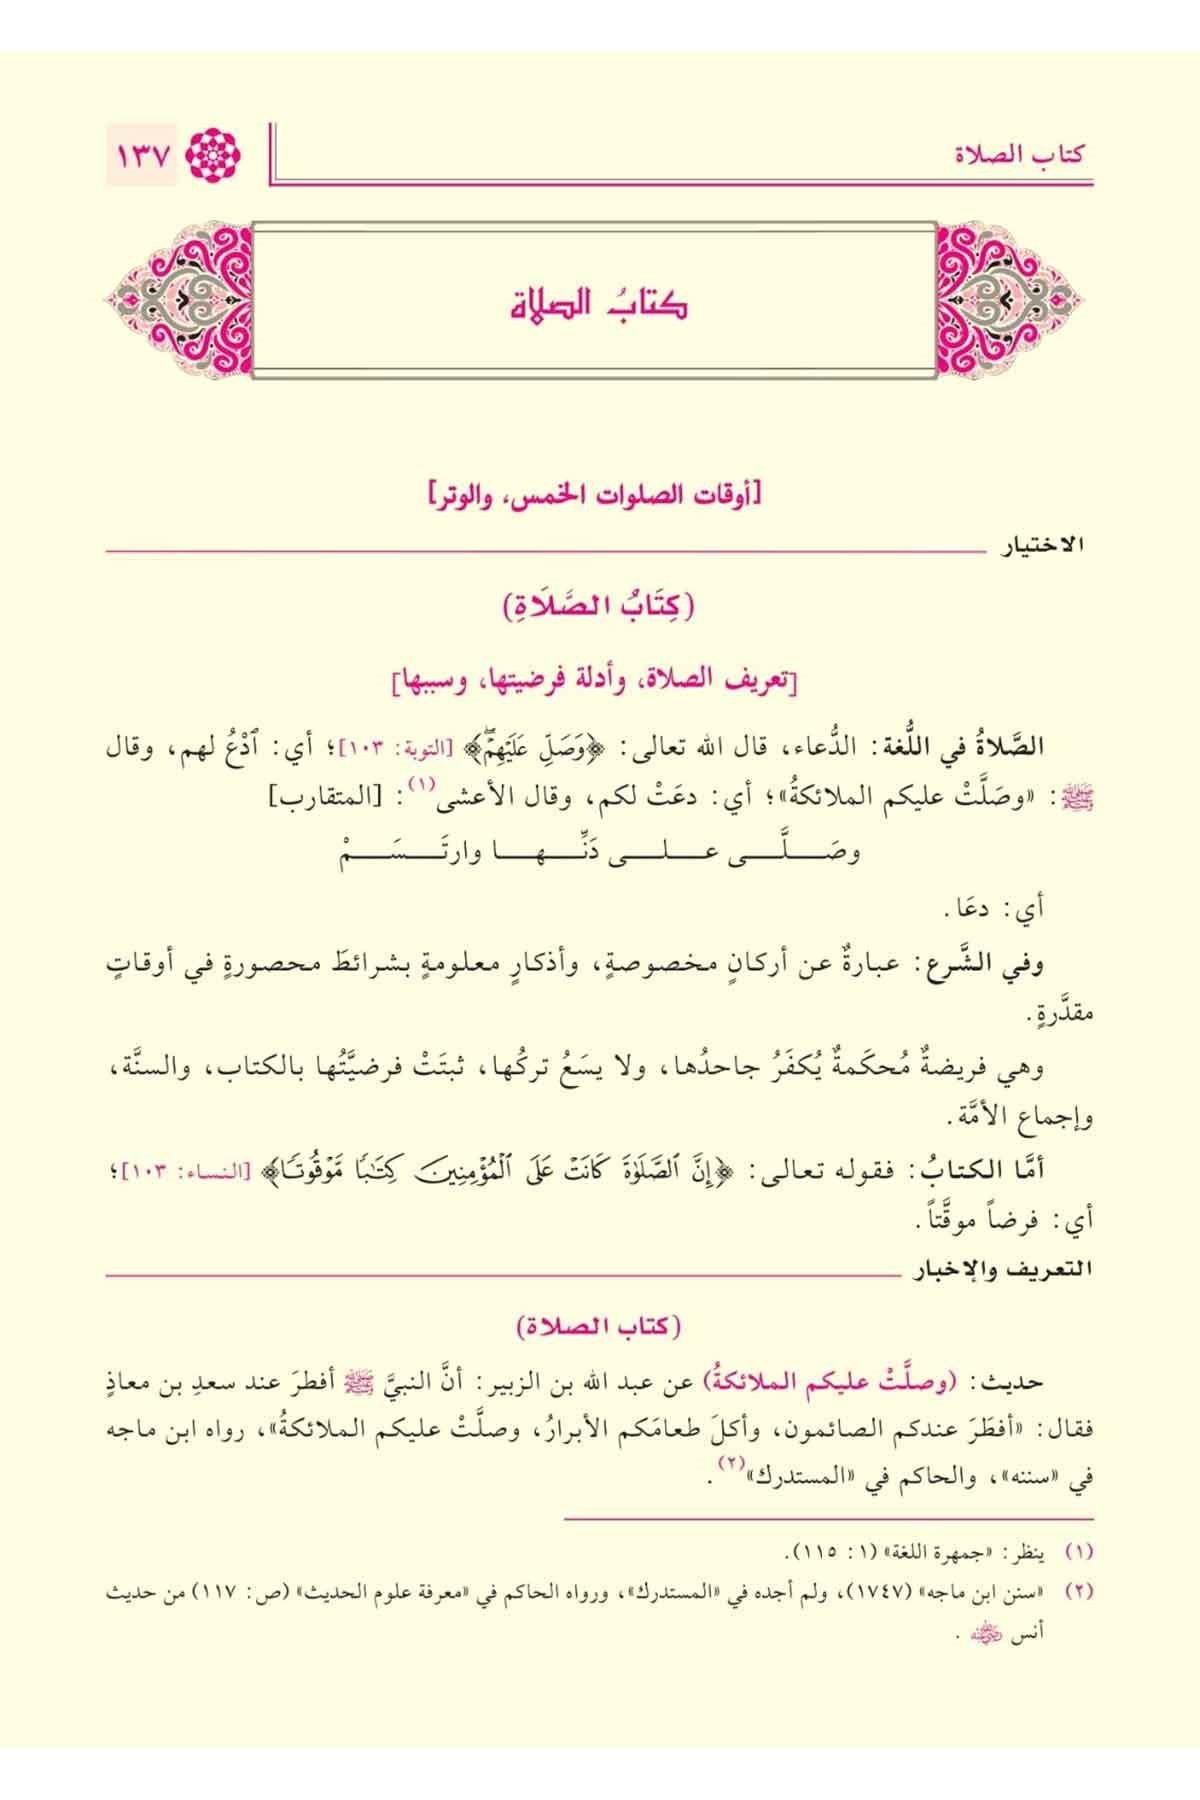 كتاب الصلاة
١٣٧
كتابُ الصلاة
[أوقات الصلوات الخمس، والوتر]
الاختيار
(كِتَابُ الصَّلَاةِ)
[تعريف الصلاة، وأدلة فرضيتها، وسببها]
الصَّلاةُ في اللُّغة: الدُّعاء، قال الله تعالى: ﴿وَصَلِّ عَلَيْهِمْ﴾ [التوبة: ١٠٣]؛ أي: ٱدْعُ لهم، وقال
ﷺ: «وصَلَّتْ عليكم الملائكةُ»؛ أي: دعَتْ لكم، وقال الأعشى(١): [المتقارب]
وصَلَّى على دَنِّها وارتَسَمْ
أي: دعَا.
وفي الشَّرع: عبارةٌ عن أركانٍ مخصوصةٍ، وأذكارٍ معلومةٍ بشرائطَ محصورةٍ في أوقاتٍ
مقدَّرةٍ.
وهي فريضةٌ مُحكَمةٌ يُكفَرُ جاحدُها، ولا يسَعُ تركُها، ثبتَتْ فرضيَّتُها بالكتاب، والسنَّة،
وإجماع الأمَّة.
أمَّا الكتابُ: فقوله تعالى: ﴿إِنَّ ٱلصَّلَوٰةَ كَانَتْ عَلَى ٱلْمُؤْمِنِينَ كِتَٰبًا مَّوْقُوتًا﴾ [النساء: ١٠٣]؛
أي: فرضاً موقَّتاً.
التعريف والإخبار
(كتاب الصلاة)
حديث: (وصلَّتْ عليكم الملائكةُ) عن عبد الله بن الزبير: أنَّ النبيَّ ﷺ أفطرَ عند سعدِ بن معاذٍ
فقال: «أفطَرَ عندكم الصائمون، وأكلَ طعامَكم الأبرارُ، وصلَّتْ عليكم الملائكةُ»، رواه ابن ماجه
في «سننه»، والحاكم في «المستدرك»(٢).
(١) ينظر: «جمهرة اللغة» (١: ١١٥).
(٢) «سنن ابن ماجه» (١٧٤٧)، ولم أجده في «المستدرك»، ورواه الحاكم في «معرفة علوم الحديث» (ص: ١١٧) من حديث
أنس رضي الله عنه.